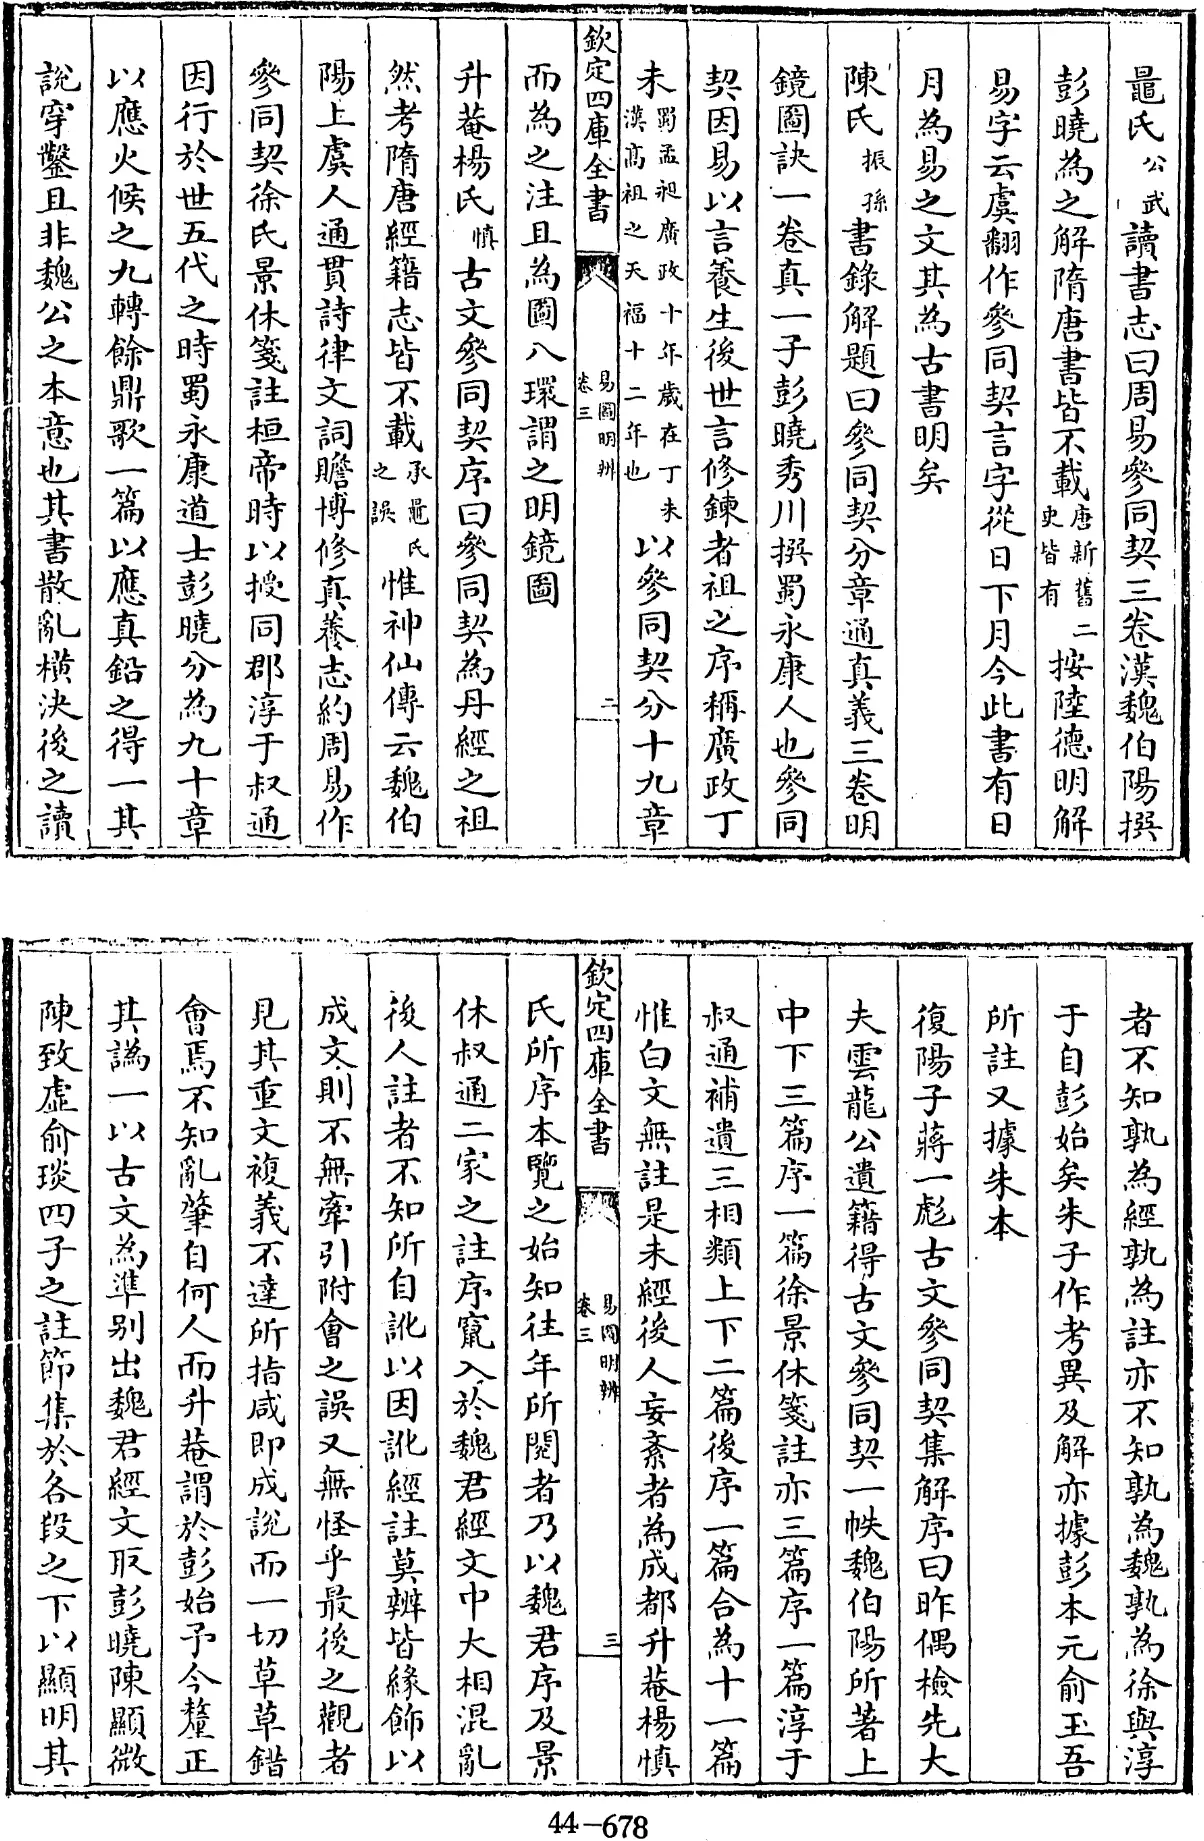 鼂氏公武讀書志曰周易參同契三卷漢魏伯陽撰
彭曉為之解隋唐書皆不載唐新舊二史皆有按陸德明解
易字云虞翻作參同契言字從日下月今此書有日
月為易之文其為古書明矣
陳氏振孫書錄解題曰參同契分章通真義三卷明
鏡圖訣一卷真一子彭曉秀川撰蜀永康人也參同
契因易以言養生後世言修鍊者祖之序稱廣政丁
未蜀孟昶廣政十年歲在丁未漢高祖之天福十二年也以參同契分十九章
而為之注且為圖八環謂之明鏡圖
升菴楊氏慎古文參同契序曰參同契為丹經之祖
然考隋唐經籍志皆不載承鼂氏之誤惟神仙傳云魏伯
陽上虞人通貫詩律文詞贍博修真養志約周易作
參同契徐氏景休箋註桓帝時以授同郡淳于叔通
因行於世五代之時蜀永康道士彭曉分為九十章
以應火候之九轉餘鼎歌一篇以應真鉛之得一其
說穿鑿且非魏公之本意也其書散亂橫決後之讀
欽定四庫全書
易圖明辨
卷三
二
者不知孰為經孰為註亦不知孰為魏孰為徐與淳
于自彭始矣朱子作考異及解亦據彭本元俞玉吾
所註又據朱本
復陽子蔣一彪古文參同契集解序曰昨偶檢先大
夫雲龍公遺籍得古文參同契一帙魏伯陽所著上
中下三篇序一篇徐景休箋註亦三篇序一篇淳于
叔通補遺三相類上下二篇後序一篇合為十一篇
惟白文無註是未經後人妄紊者為成都升菴楊慎
氏所序本覽之始知往年所閱者乃以魏君序及景
休叔通二家之註序竄入於魏君經文中大相混亂
後人註者不知所自訛以因訛經註莫辨皆緣飾以
成文則不無牽引附會之誤又無怪乎最後之觀者
見其重文複義不達所指咸即成說而一切草草錯
會焉不知亂肇自何人而升菴謂於彭始予今釐正
其譌一以古文為準別出魏君經文取彭曉陳顯微
陳致虛俞琰四子之註節集於各段之下以顯明其
欽定四庫全書
易圖明辨
卷三
三
44-678